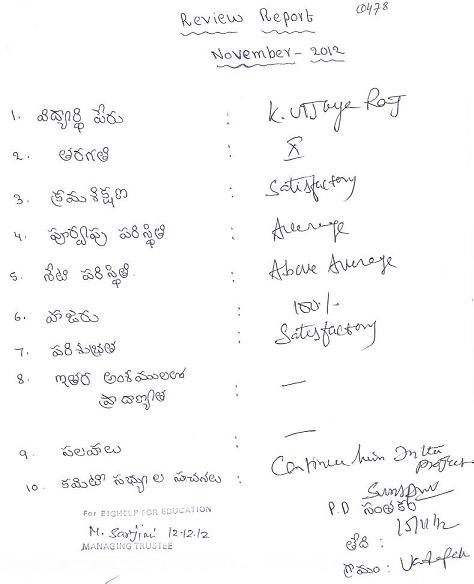 C0478
Review Report
November - 2012
1. విద్యార్థి పేరు : K. Vijaya Raj
2. తరగతి : X
3. క్రమశిక్షణ : Satisfactory
4. పూర్వపు పరిస్థితి : Average
5. నేటి పరిస్థితి. : Above Average
6. హాజరు : 100/-
7. పరిశుభ్రత : Satisfactory
8. ఇతర అంశములలో : —
ప్రావీణ్యత
9. సలహాలు : —
10. కమిటీ సభ్యుల సూచనలు : Continue him in the project
P.D సంతకం
For BIGHELP FOR EDUCATION
M. Sarjini 12-12.12
15/11/12
MANAGING TRUSTEE
తేది :
గ్రామం :